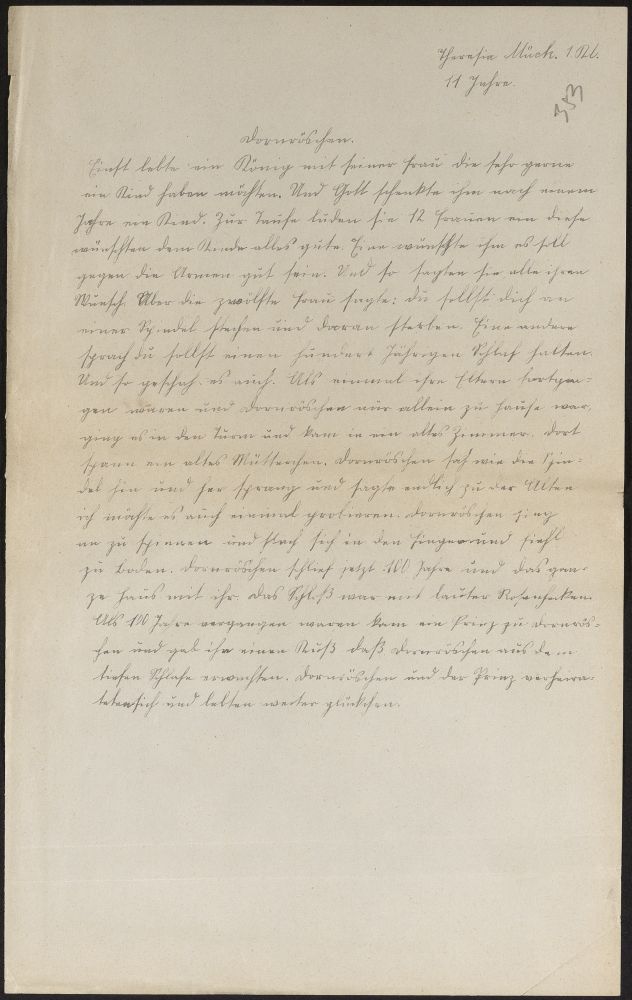 Theresia Mück. 1. Kl.
11 Jahre.
353
Dornröschen.
Einst lebte ein König mit seiner Frau die sehr gerne
ein Kind haben möchten. Und Gott schenkte ihm nach einem
Jahre ein Kind. Zur Taufe luden sie 12 Frauen ein diese
wünschten dem Kinde alles gute. Eine wünschte ihm es soll
gegen die Armen gut sein. Und so sagten sie alle ihren
Wunsch. Aber die zwölfte Frau sagte: du sollst dich an
einer Spindel stechen und daran sterben. Eine andere
sprach du sollst einen hundert jährigen Schlaf halten.
Und so geschah es auch. Als einmal ihre Eltern fortgan-
gen waren und Dornröschen nur allein zu Hause war,
ging es in den Turm und kam in ein altes Zimmer. Dort
spann ein altes Mütterchen. Dornröschen sah wie die Spin-
del hin und her sprang und sagte endlich zu der Alten
ich möchte es auch einmal probieren. Dornröschen fing
an zu spinnen und stach sich in den Finger und fiehl
zu Boden. Dornröschen schlief jetzt 100 Jahre und das gan-
ze Haus mit ihr. Das Schloß war mit lauter Rosenhecken.
Als 100 Jahre vergangen waren kam ein Prinz zu Dornrös-
chen und gab ihr einen Kuß daß Dornröschen aus dem
tiefen Schlafe erwachten. Dornröschen und der Prinz verheira-
teten sich und lebten weiter